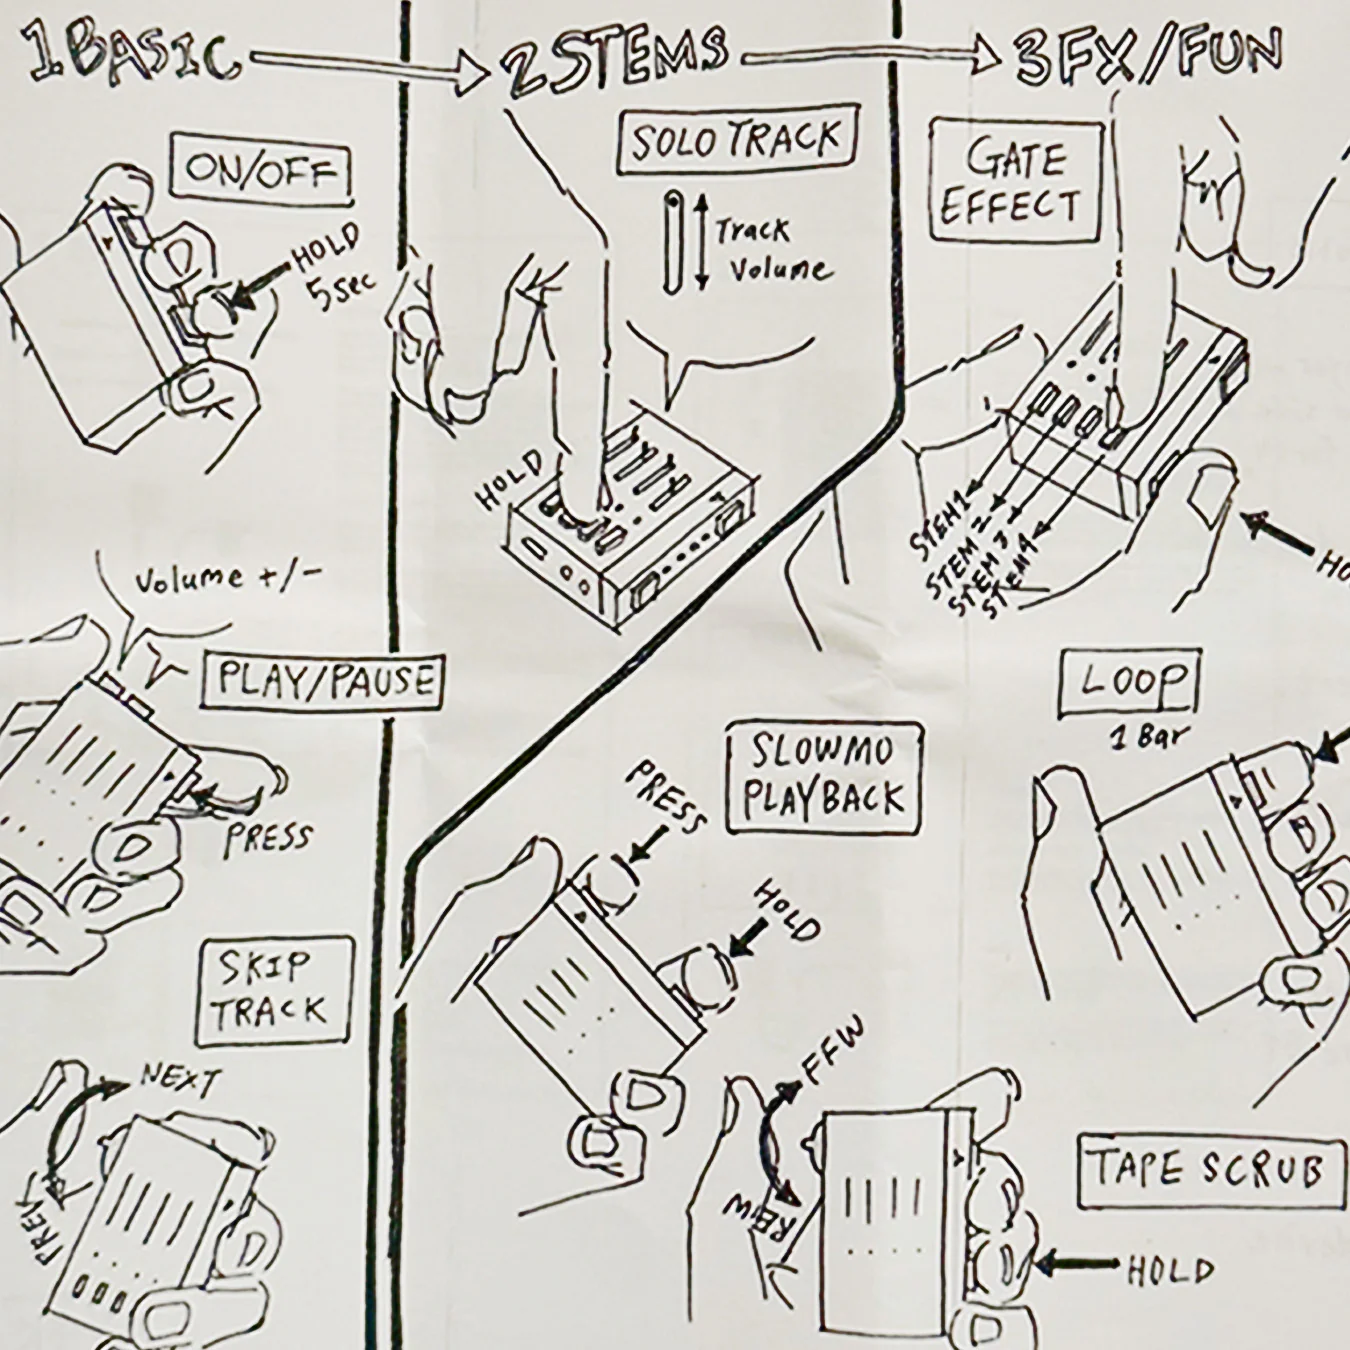 1 BASIC
2 STEMS
3 FX/FUN
ON/OFF
HOLD
5 Sec
Volume +/-
PLAY/PAUSE
PRESS
SKIP
TRACK
NEXT
PREV
SOLO TRACK
Track
Volume
HOLD
GATE
EFFECT
STEM 1
STEM 2
STEM 3
STEM 4
SLOWMO
PLAYBACK
PRESS
HOLD
LOOP
1 Bar
FFW
REW
TAPE SCRUB
HOLD